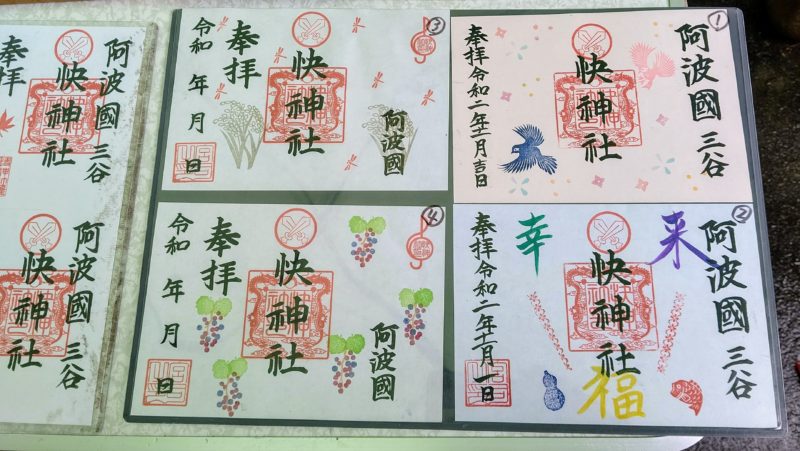 ①
阿波國 三谷
快神社
奉拝 令和二年十一月吉日
②
阿波國 三谷
来
快神社
福
幸
奉拝 令和二年十一月一日
③
阿波國
快神社
奉拝
令和 年 月 日
④
阿波國
快神社
奉拝
令和 年 月 日
阿波國 三谷
快神社
奉拝
阿波國 三谷
快神社